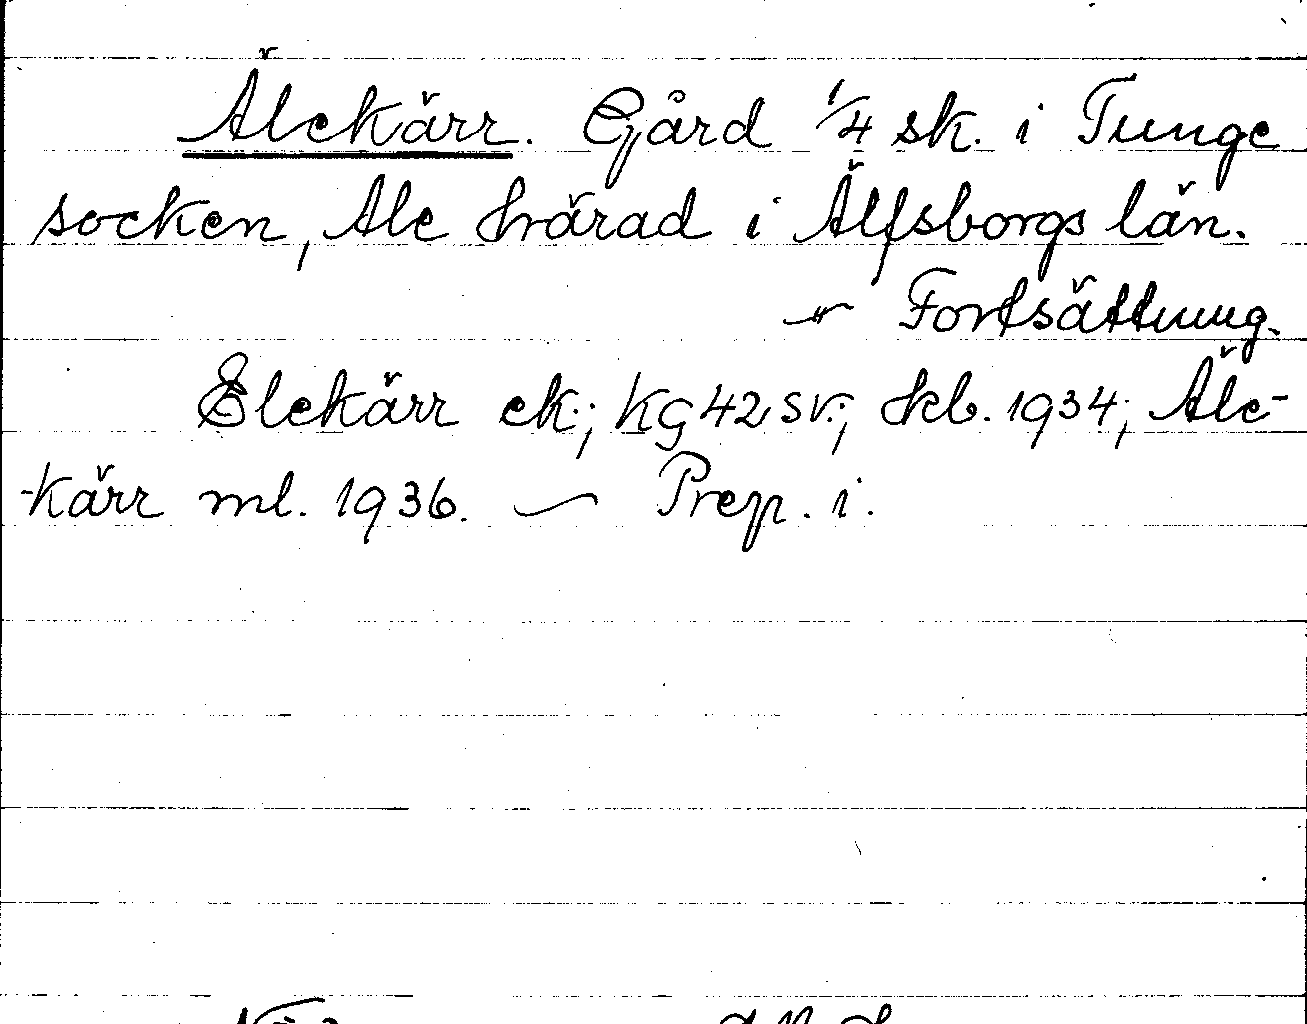 Älekärr. Gård 1/4 sk. i Tunge
socken, Ale härad i Älfsborgs län.
~ Fortsättning.
Elekärr ek.; KG 42 sv.; hkb. 1934; Äle-
kärr ml. 1936. ~ Prep. i.